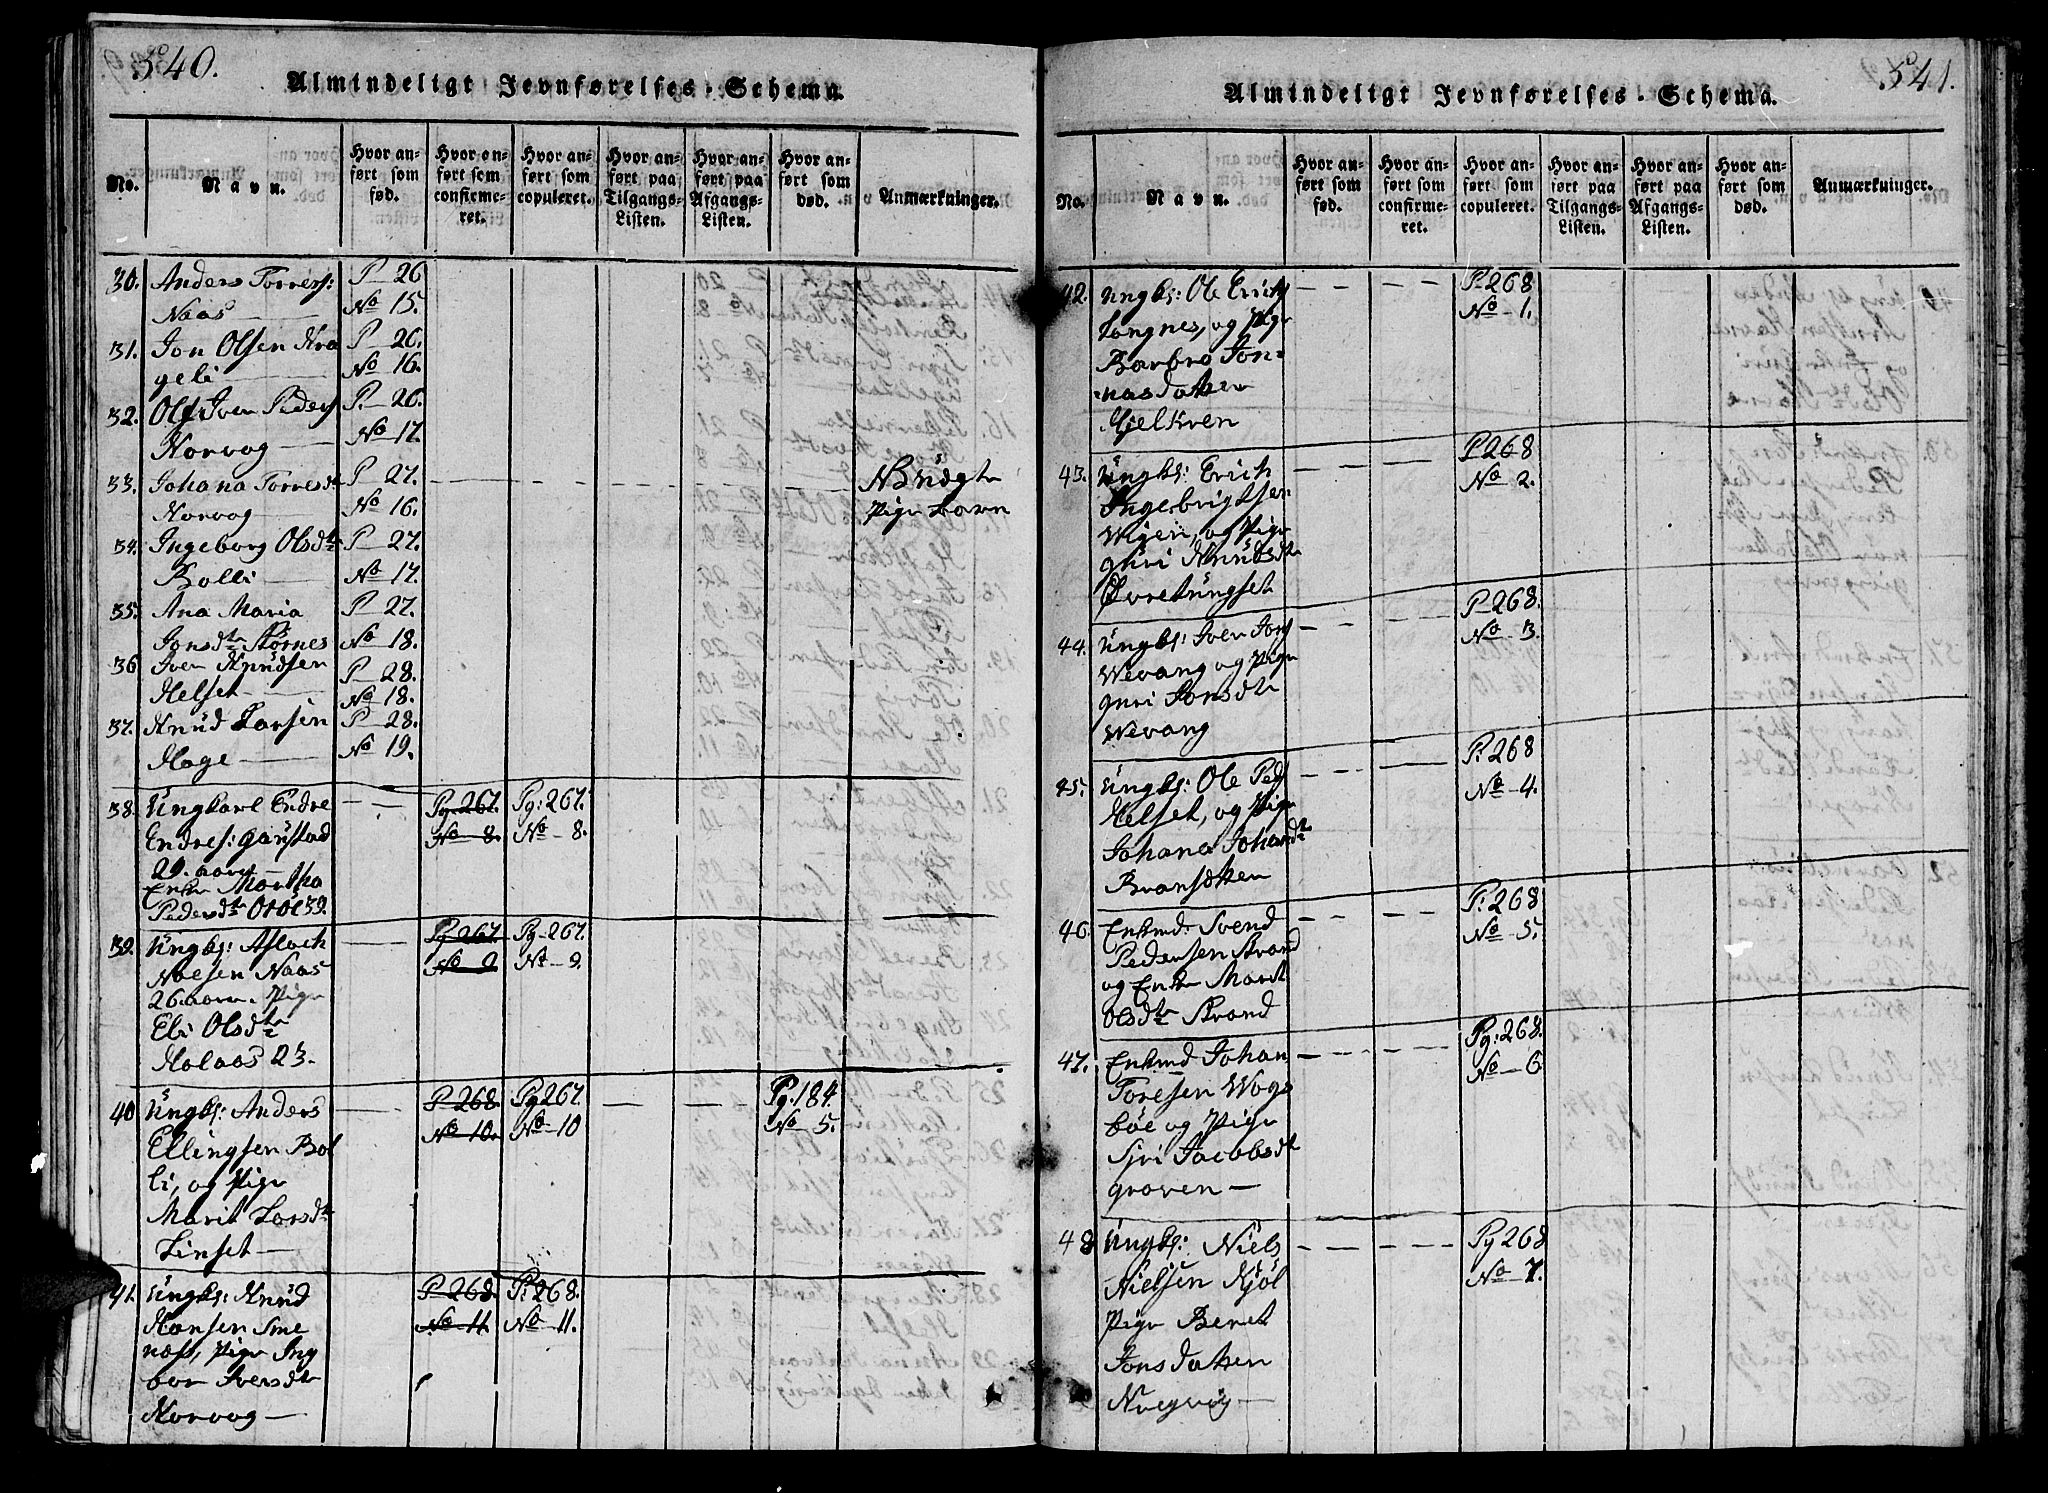 540.
Almindeligt Jevnførelses-Schema.
No. Navn. Hvor anført som fød. Hvor anført som confirmeret. Hvor anført som copuleret. Hvor anført paa Tilgangs-Listen. Hvor anført paa Afgangs-Listen. Hvor anført som død. Anmærkninger.
30. Anders Torress: P- 26
Naas No 15.
31. Jon Olsen Kra P- 26.
geli No 16.
32. Iver Peders P- 26.
Norvog No 17.
33. Johana Torresdtr P- 27.
Norvog No 16. Pige
34. Ingeborg Olsdtr P- 27.
Bolli No 17.
35. Ana Maria P- 27.
Jonsdtr Stornes No 18.
36 Iver Knudsen P- 28.
Helset No 18.
37. Knud Larsen P- 28.
Hage No 19.
38. Ungkarl Endre — — Pg. 267. Pg: 267.
Endres: Garstad No- 8. No- 8.
29. aar
Enke Martha
Pedersdtr Otøe 39.
39. Ungks: Aslach — Pg 267. Pg- 267.
Noesen Naas No 9 No- 9.
26. aar. Pige
Eli Olsdtr
Holaas 23.
40 Ungks: Anders — P 268. Pg 267 — — Pg. 184.
Ellingsen Bol No 10. No- 10 No- 5.
li, og Pige
Marit Larsdtr
Linset —
41. Ungks: Knud P- 268. P: 268.
Hansen Sme No 11 No- 11.
næss, Pige Ing
bor Iversdtr
Norvog —
541.
Almindeligt Jevnførelses-Schema.
No. Navn. Hvor anført som fød. Hvor anført som confirmeret. Hvor anført som copuleret. Hvor anført paa Tilgangs-Listen. Hvor anført paa Afgangs-Listen. Hvor anført som død. Anmærkninger.
42. Ungks: Ole Erichs — — — P- 268
Langnes, og Pige No- 1.
Barbro Jon-
nasdatter
Gjelkren
43. Ungks: Erich — — — P 268
Ingebrigtsen No- 2.
Wigen, og Pige
Guri Knudsdtr
Øvretungset
44. Ungks: Iver Jons — — — P- 268.
Wevang og Pige No- 3.
Guri Jonsdtr
Wevang
45. Ungks: Ole Peds — — — P: 268
Helset, og Pige No- 4.
Johana Johansdtr
46. Enkmd: Svend — — — P: 268
Pedersen Strand No- 5.
og Enke Marit
Olsdtr Strand
47. Enkmd Johan — — — Pg: 268.
Toresen Wogs No- 6
böe og Pige
Sjri Jacobsdt
graven —
48 Ungks: Niels — — — Pg 268
Nielsen Kjöl No- 7.
Pige Beret
Jonsdatter